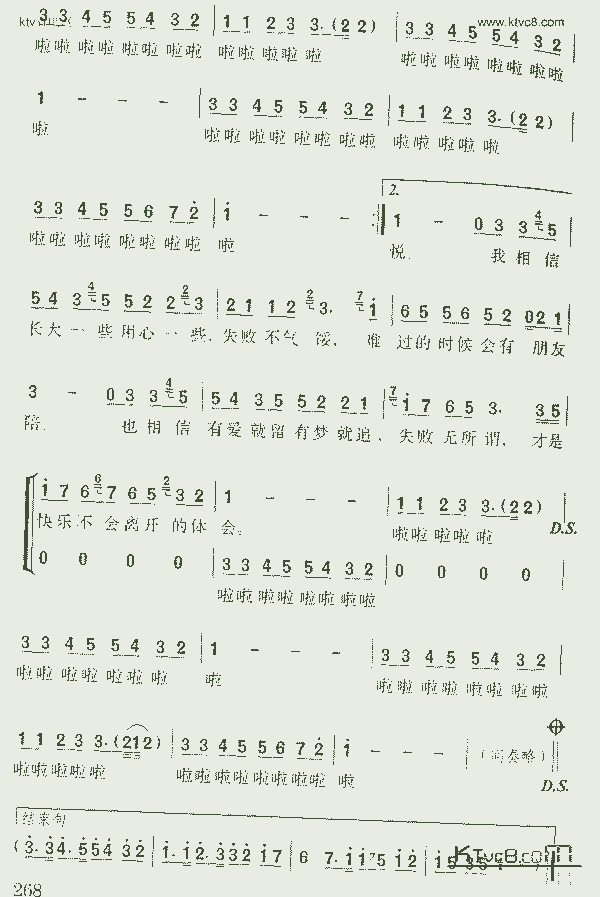 3 3 4 5 5 4 3 2 | 1 1 2 3 3. (2 2) | 3 3 4 5 5 4 3 2 |
www.ktvc8.com
啦啦 啦啦 啦啦 啦啦 啦啦 啦啦 啦 啦啦 啦啦 啦啦 啦啦
1 - - - | 3 3 4 5 5 4 3 2 | 1 1 2 3 3. (2 2) |
啦 啦啦 啦啦 啦啦 啦啦 啦啦 啦啦 啦
2.
3 3 4 5 5 6 7 2 | 1 - - - :| 1 - 0 3 3 4 5 |
啦啦 啦啦 啦啦 啦啦 啦 悦. 我 相 信
5 4 3 4 5 5 2 2 2 3 | 2 1 1 2 2 3. 7 1 | 6 5 5 6 5 2 0 2 1 |
长大 一 些 用心 一 些、失败 不气 馁, 难 过的 时候 会有 朋友
3 - 0 3 3 4 5 | 5 4 3 5 5 2 2 1 | 7 1 7 6 5 3. 3 5 |
陪. 也 相 信 有爱 就留 有梦 就追、失败 无所 谓, 才是
1 7 6 6 7 6 5 2 3 2 | 1 - - - | 1 1 2 3 3. (2 2) |
快乐 不 会 离开 的体 会。 啦啦 啦啦 啦
D.S.
0 0 0 0 | 3 3 4 5 5 4 3 2 | 0 0 0 0 |
啦啦 啦啦 啦啦 啦啦
3 3 4 5 5 4 3 2 | 1 - - - | 3 3 4 5 5 4 3 2 |
啦啦 啦啦 啦啦 啦啦 啦 啦啦 啦啦 啦啦 啦啦
1 1 2 3 3. (2 1 2) | 3 3 4 5 5 6 7 2 | 1 - - - (间奏略)
啦啦 啦啦 啦 啦啦 啦啦 啦啦 啦啦 啦
D.S.
结束句
(3. 3 4. 5 5 4 3 2 | 1. 1 2. 3 3 2 1 7 | 6 7. 1 1 7 5 1 2 |
KTvc8.co
268